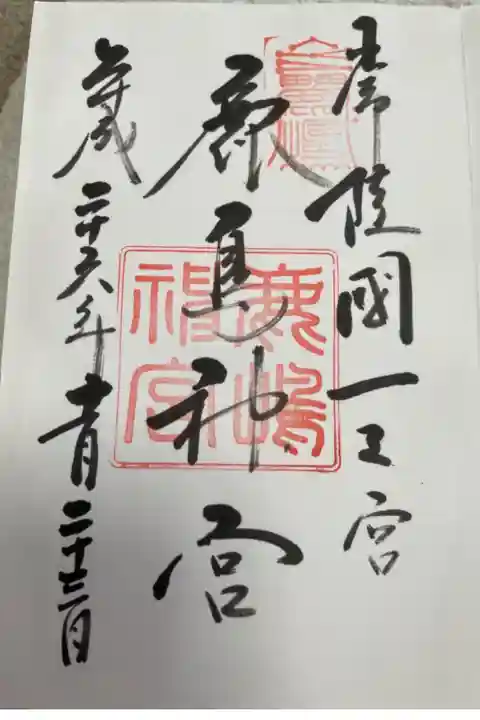 常陸國一之宮
鹿島神宮
鹿嶋神宮
平成二十六年十一月二十三日